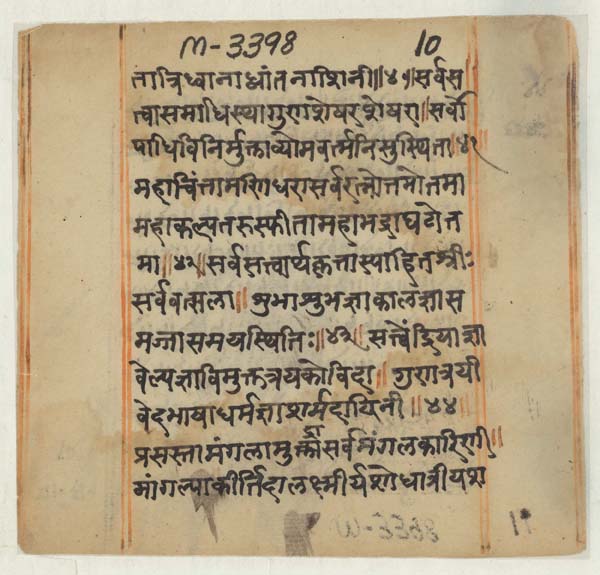 M-3398 10
तात्रिध्वानाध्वांतनाशिनी॥४१ सर्वस
त्वासमाधिस्थागुराशेखरशेखरा॥सर्वो
पाधिविनिर्मुक्ताव्योमवर्त्मनिसुस्थिता॥४२
महाचिंतामणिधरासर्वरत्नोत्तमोत्तमा
महाकल्पतरुस्फीतामहाभद्राघटोत्त
मा॥४३॥सर्वसत्त्वार्थकृत्तास्याहितश्रीः
सर्ववत्सला॥शुभाशुभज्ञाकालज्ञास
मज्ञासमयस्थितिः॥४३॥ सत्त्वेंद्रियाज्ञा
वेल्पज्ञाविमुक्तत्रयकोविदा॥गुणत्रयी
वेदभाषाधर्मज्ञाशर्मदायिनी॥४४
प्रसस्तामंगलामुक्तौसर्वमंगलकारिणी॥
मांगल्याकीर्त्तिदालक्ष्मीर्यशोधात्रीयश